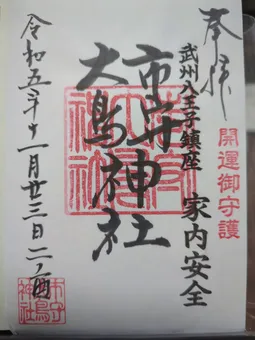 奉拝
開運御守護
武州八王子鎮座 家内安全
市守神社
大鳥神社
令和五年十一月廿三日二ノ酉